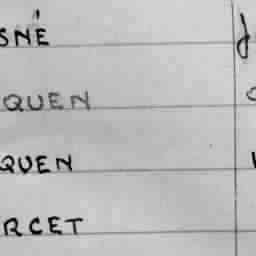 SNÉ
QUEN
QUEN
RCET